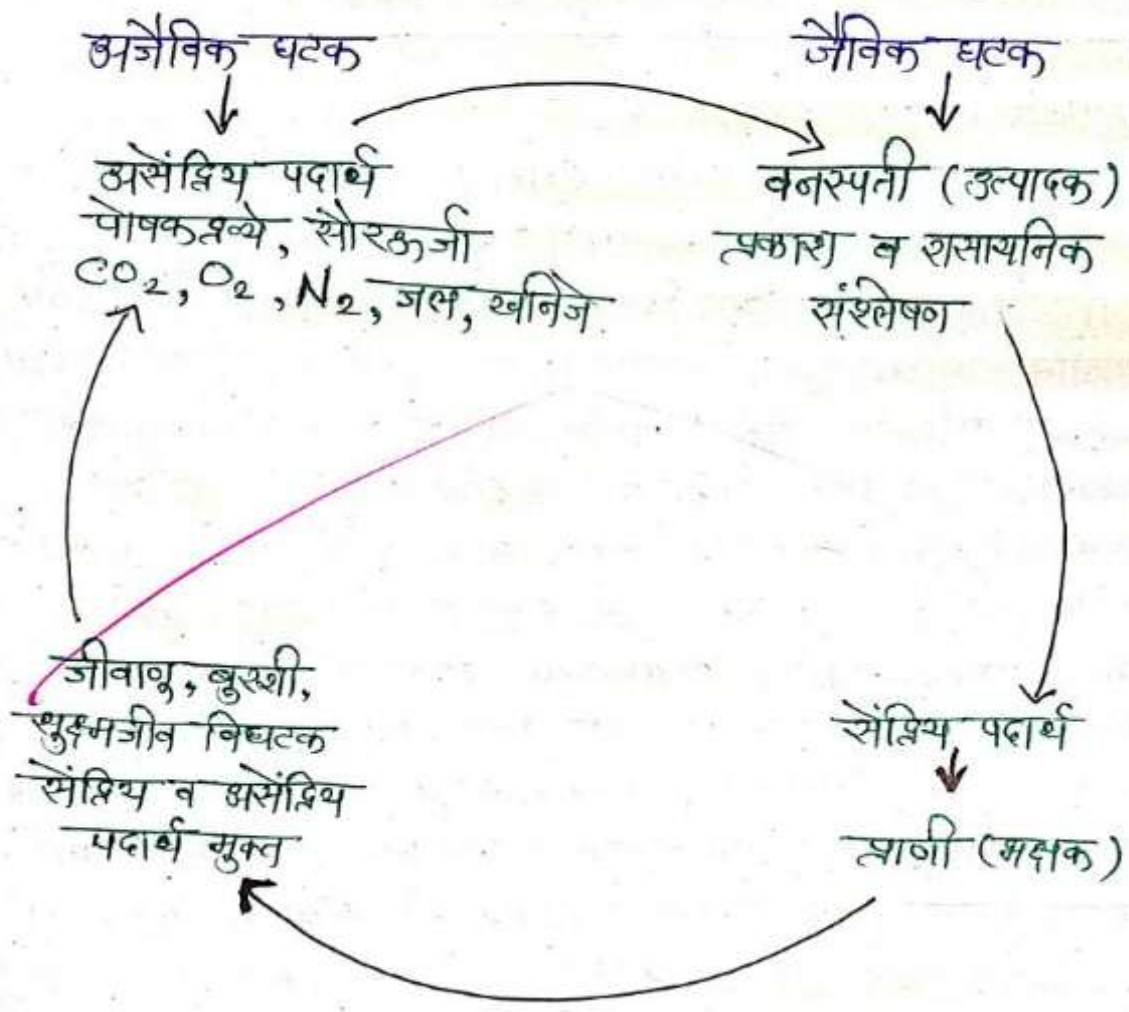 अजैविक घटक
जैविक घटक
असेंद्रिय पदार्थ
पोषकद्रव्ये, सौरऊर्जा
CO₂, O₂, N₂, जल, खनिजे
वनस्पती (उत्पादक)
प्रकाश व रासायनिक
संश्लेषण
सेंद्रिय पदार्थ
प्राणी (भक्षक)
जीवाणू, बुरशी,
सुक्ष्मजीव विघटक
सेंद्रिय व असेंद्रिय
पदार्थ मुक्त